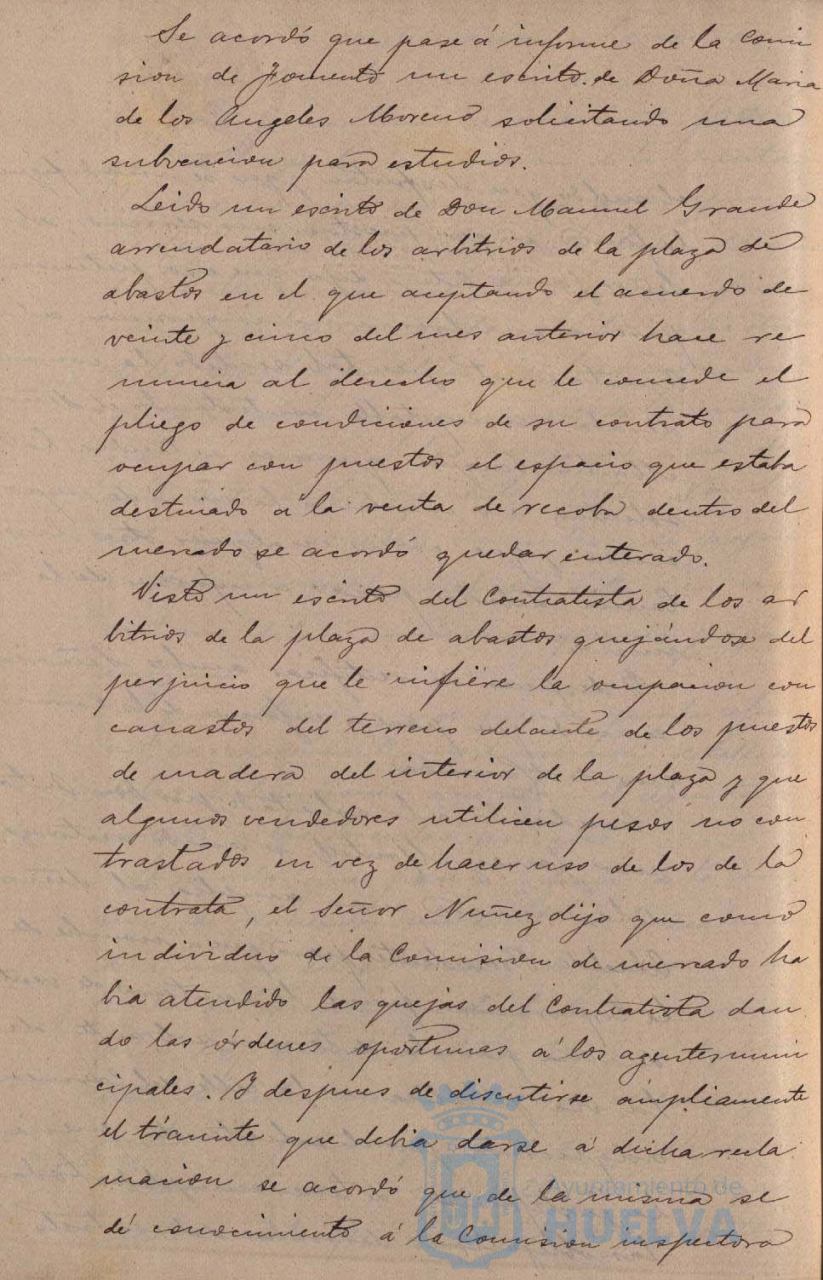 Se acordó que pase á informe de la Comi
sion de Fomento un escrito de Doña Maria
de los Angeles Moreno solicitando una
subvencion para estudios.
Leido un escrito de Don Manuel Grande
arrendatario de los arbitrios de la plaza de
abastos en el que aceptando el acuerdo de
veinte y cinco del mes anterior hace re
nuncia al derecho que le concede el
pliego de condiciones de su contrato para
ocupar con puestos el espacio que estaba
destinado a la venta de recoba dentro del
mercado se acordó quedar enterado.
Visto un escrito del Contratista de los ar
bitrios de la plaza de abastos quejándose del
perjuicio que le infiere la ocupacion con
canastos del terreno delante de los puestos
de madera del interior de la plaza y que
algunos vendedores utilicen pesos no con
trastados en vez de hacer uso de los de la
contrata, el Señor Nuñez dijo que como
individuo de la Comision de mercado ha
bia atendido las quejas del Contratista dan
do las órdenes oportunas á los agentes muni
cipales. Y despues de discutirse ámpliamente
el trámite que debia darse á dicha recla
macion se acordó que de la misma se
dé conocimiento á la Comision inspectora
Ayuntamiento de
HUELVA